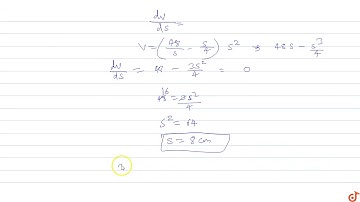 dv/ds =
V = (48/s - s/4) s² ⇒ 48s - s³/4
dv/ds = 48 - 3s²/4 = 0
16
48 = 3s²/4
s² = 64
s = 8 cm